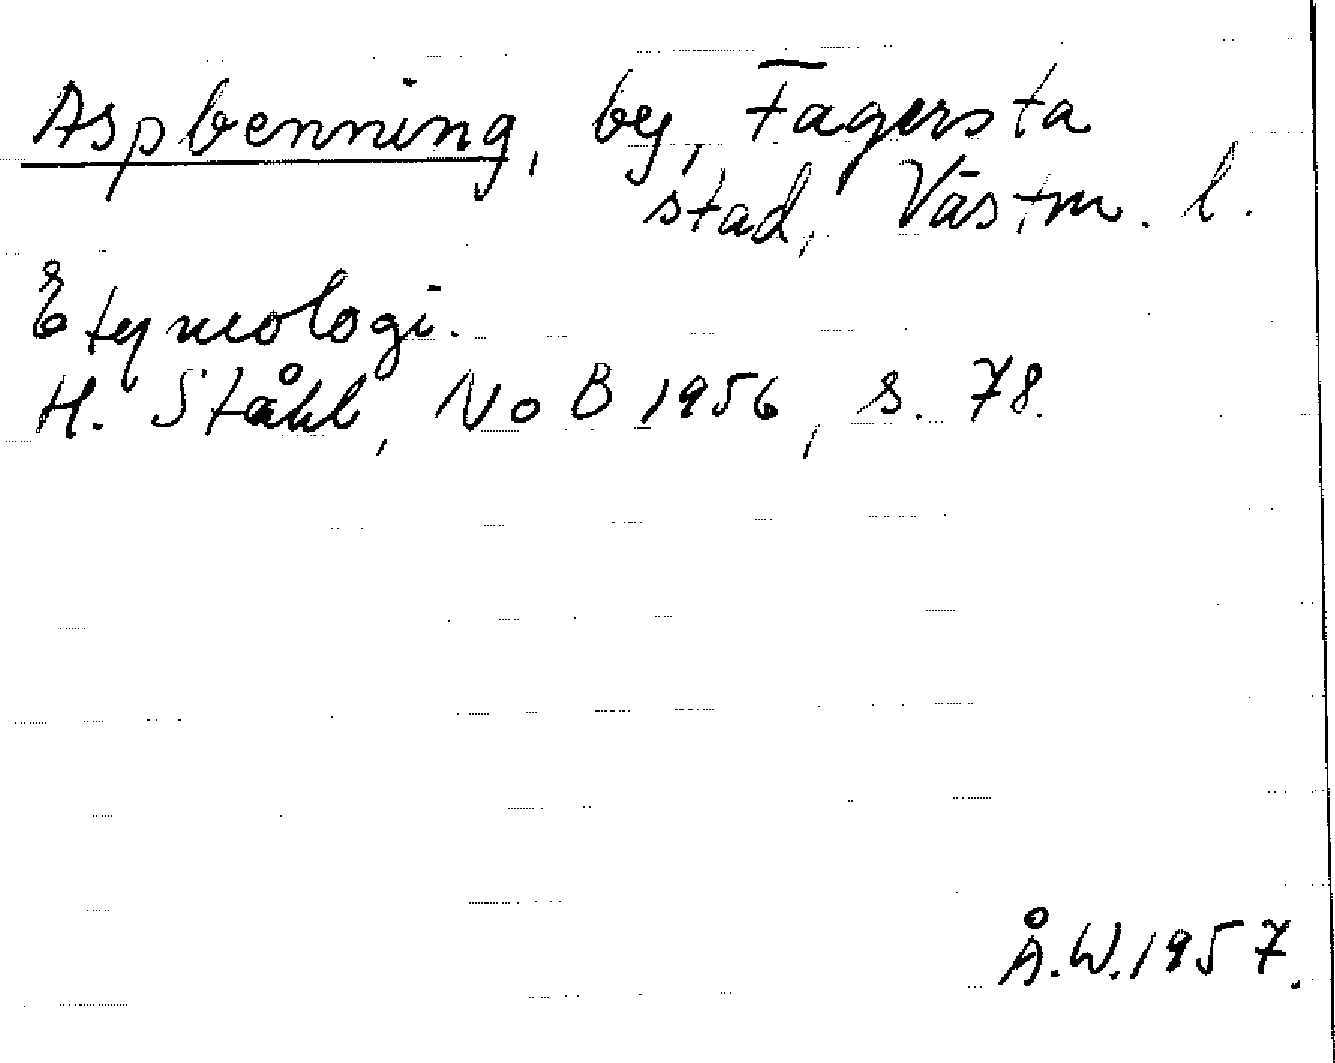 Aspbenning, by, Fagersta
stad, Västm. l.
Etymologi.
H. Ståhl, NoB 1956, s. 78.
Å.W. 1957.